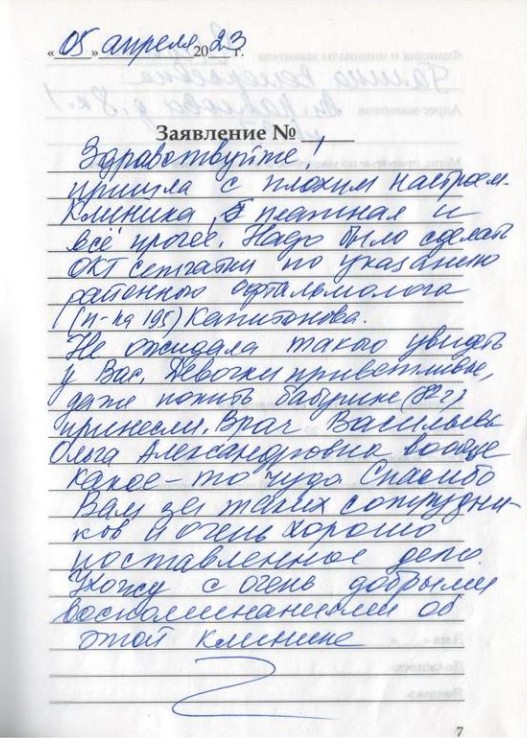 «05» апреля 2023 г.
Заявление №
Здравствуйте!
пришла с плохим настроем.
Клиника платная и
всё прочее. Надо было сделать
ОКТ сетчатки по указанию
районного офтальмолога
(п-ка 195) Капитонова.
Не ожидала такого увидеть
у Вас. Девочки приветливые,
даже попить бабушке
принесли. Врач Васильева
Ольга Александровна вообще
какое-то чудо. Спасибо
Вам за таких сотрудни-
ков и очень хорошо
поставленное дело.
Ухожу с очень добрыми
воспоминаниями об
этой клинике
7